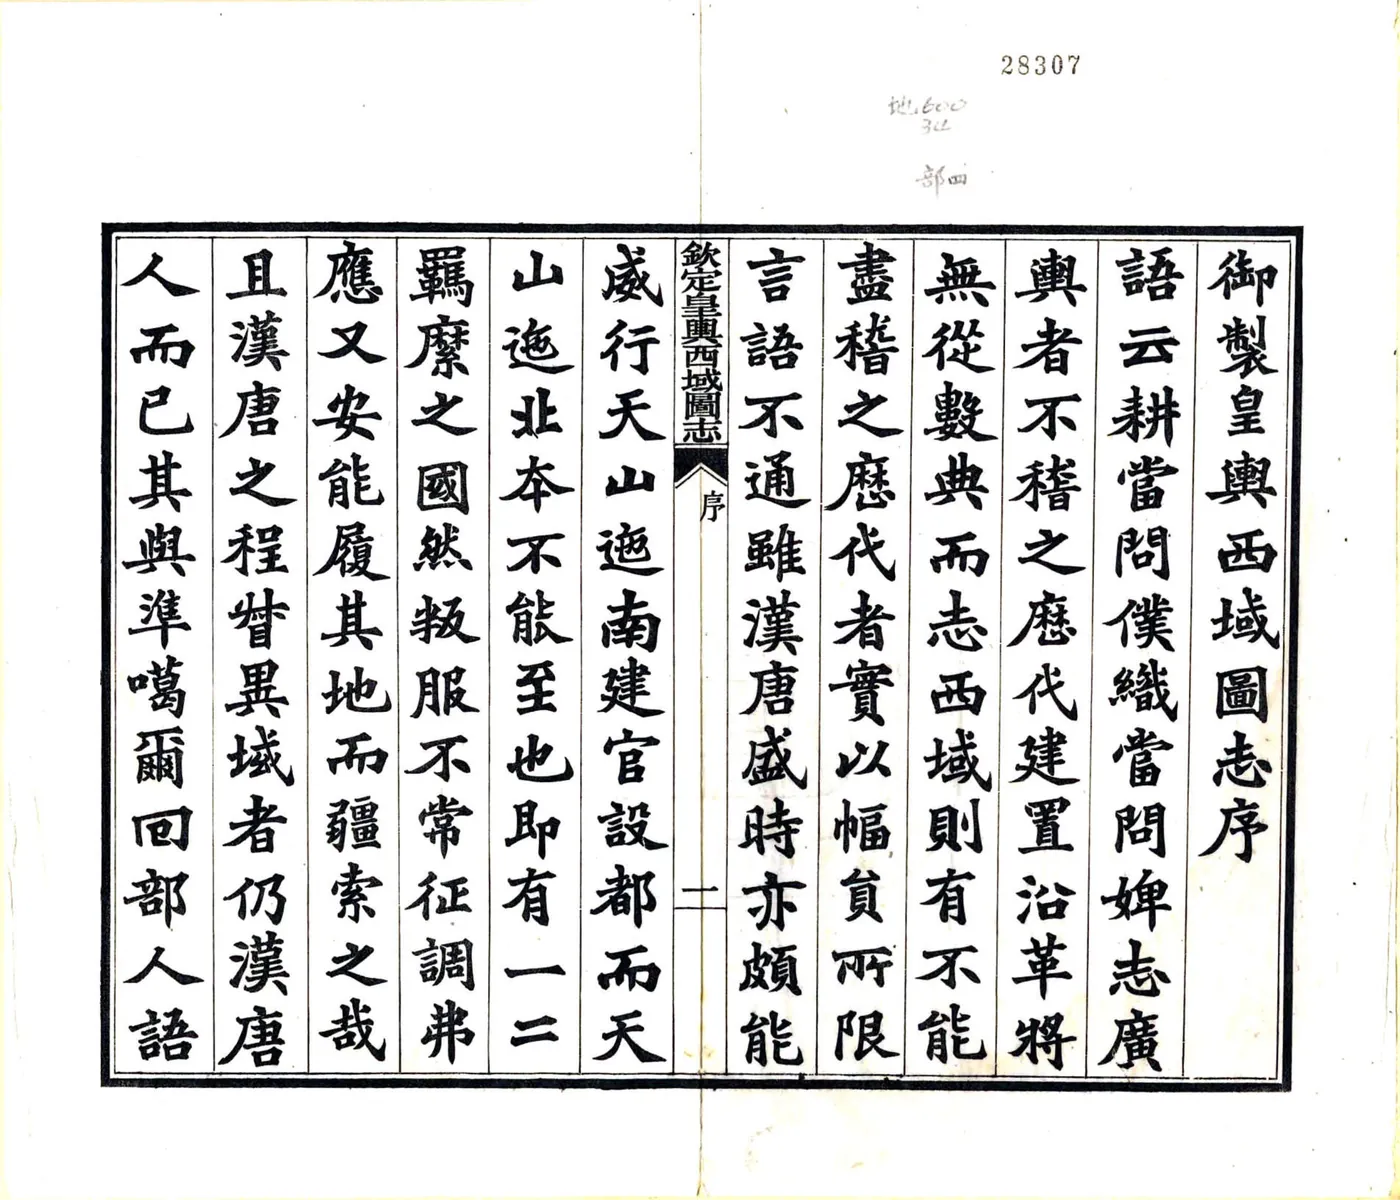 28307
地600
34
部四
御製皇輿西域圖志序
語云耕當問僕織當問婢志廣
輿者不稽之歷代建置沿革將
無從數典而志西域則有不能
盡稽之歷代者實以幅員所限
言語不通雖漢唐盛時亦頗能
欽定皇輿西域圖志
序
二
威行天山迤南建官設都而天
山迤北夲不能至也即有一二
羈縻之國然叛服不常征調弗
應又安能履其地而疆索之哉
且漢唐之程督異域者仍漢唐
人而已其與準噶爾回部人語